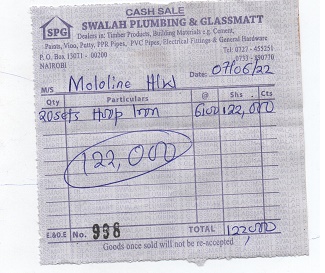 CASH SALE
SPG
SWALAH PLUMBING & GLASSMATT
Dealers in: Timber Products, Building Materials e.g. Cement,
Paints, Vino, Putty, PPR Pipes, PVC Pipes, Electrical Fittings & General Hardware
P. O. Box 13071 - 00200
NAIROBI
Tel: 0727 - 455251
Date: 07/06/22
M/S Mololine H/W
Qty Particulars @ Shs Cts
20sets Hoop Iron 6100 122,000
122,000
E.&O.E No. 998 TOTAL 122,000
Goods once sold will not be re-accepted